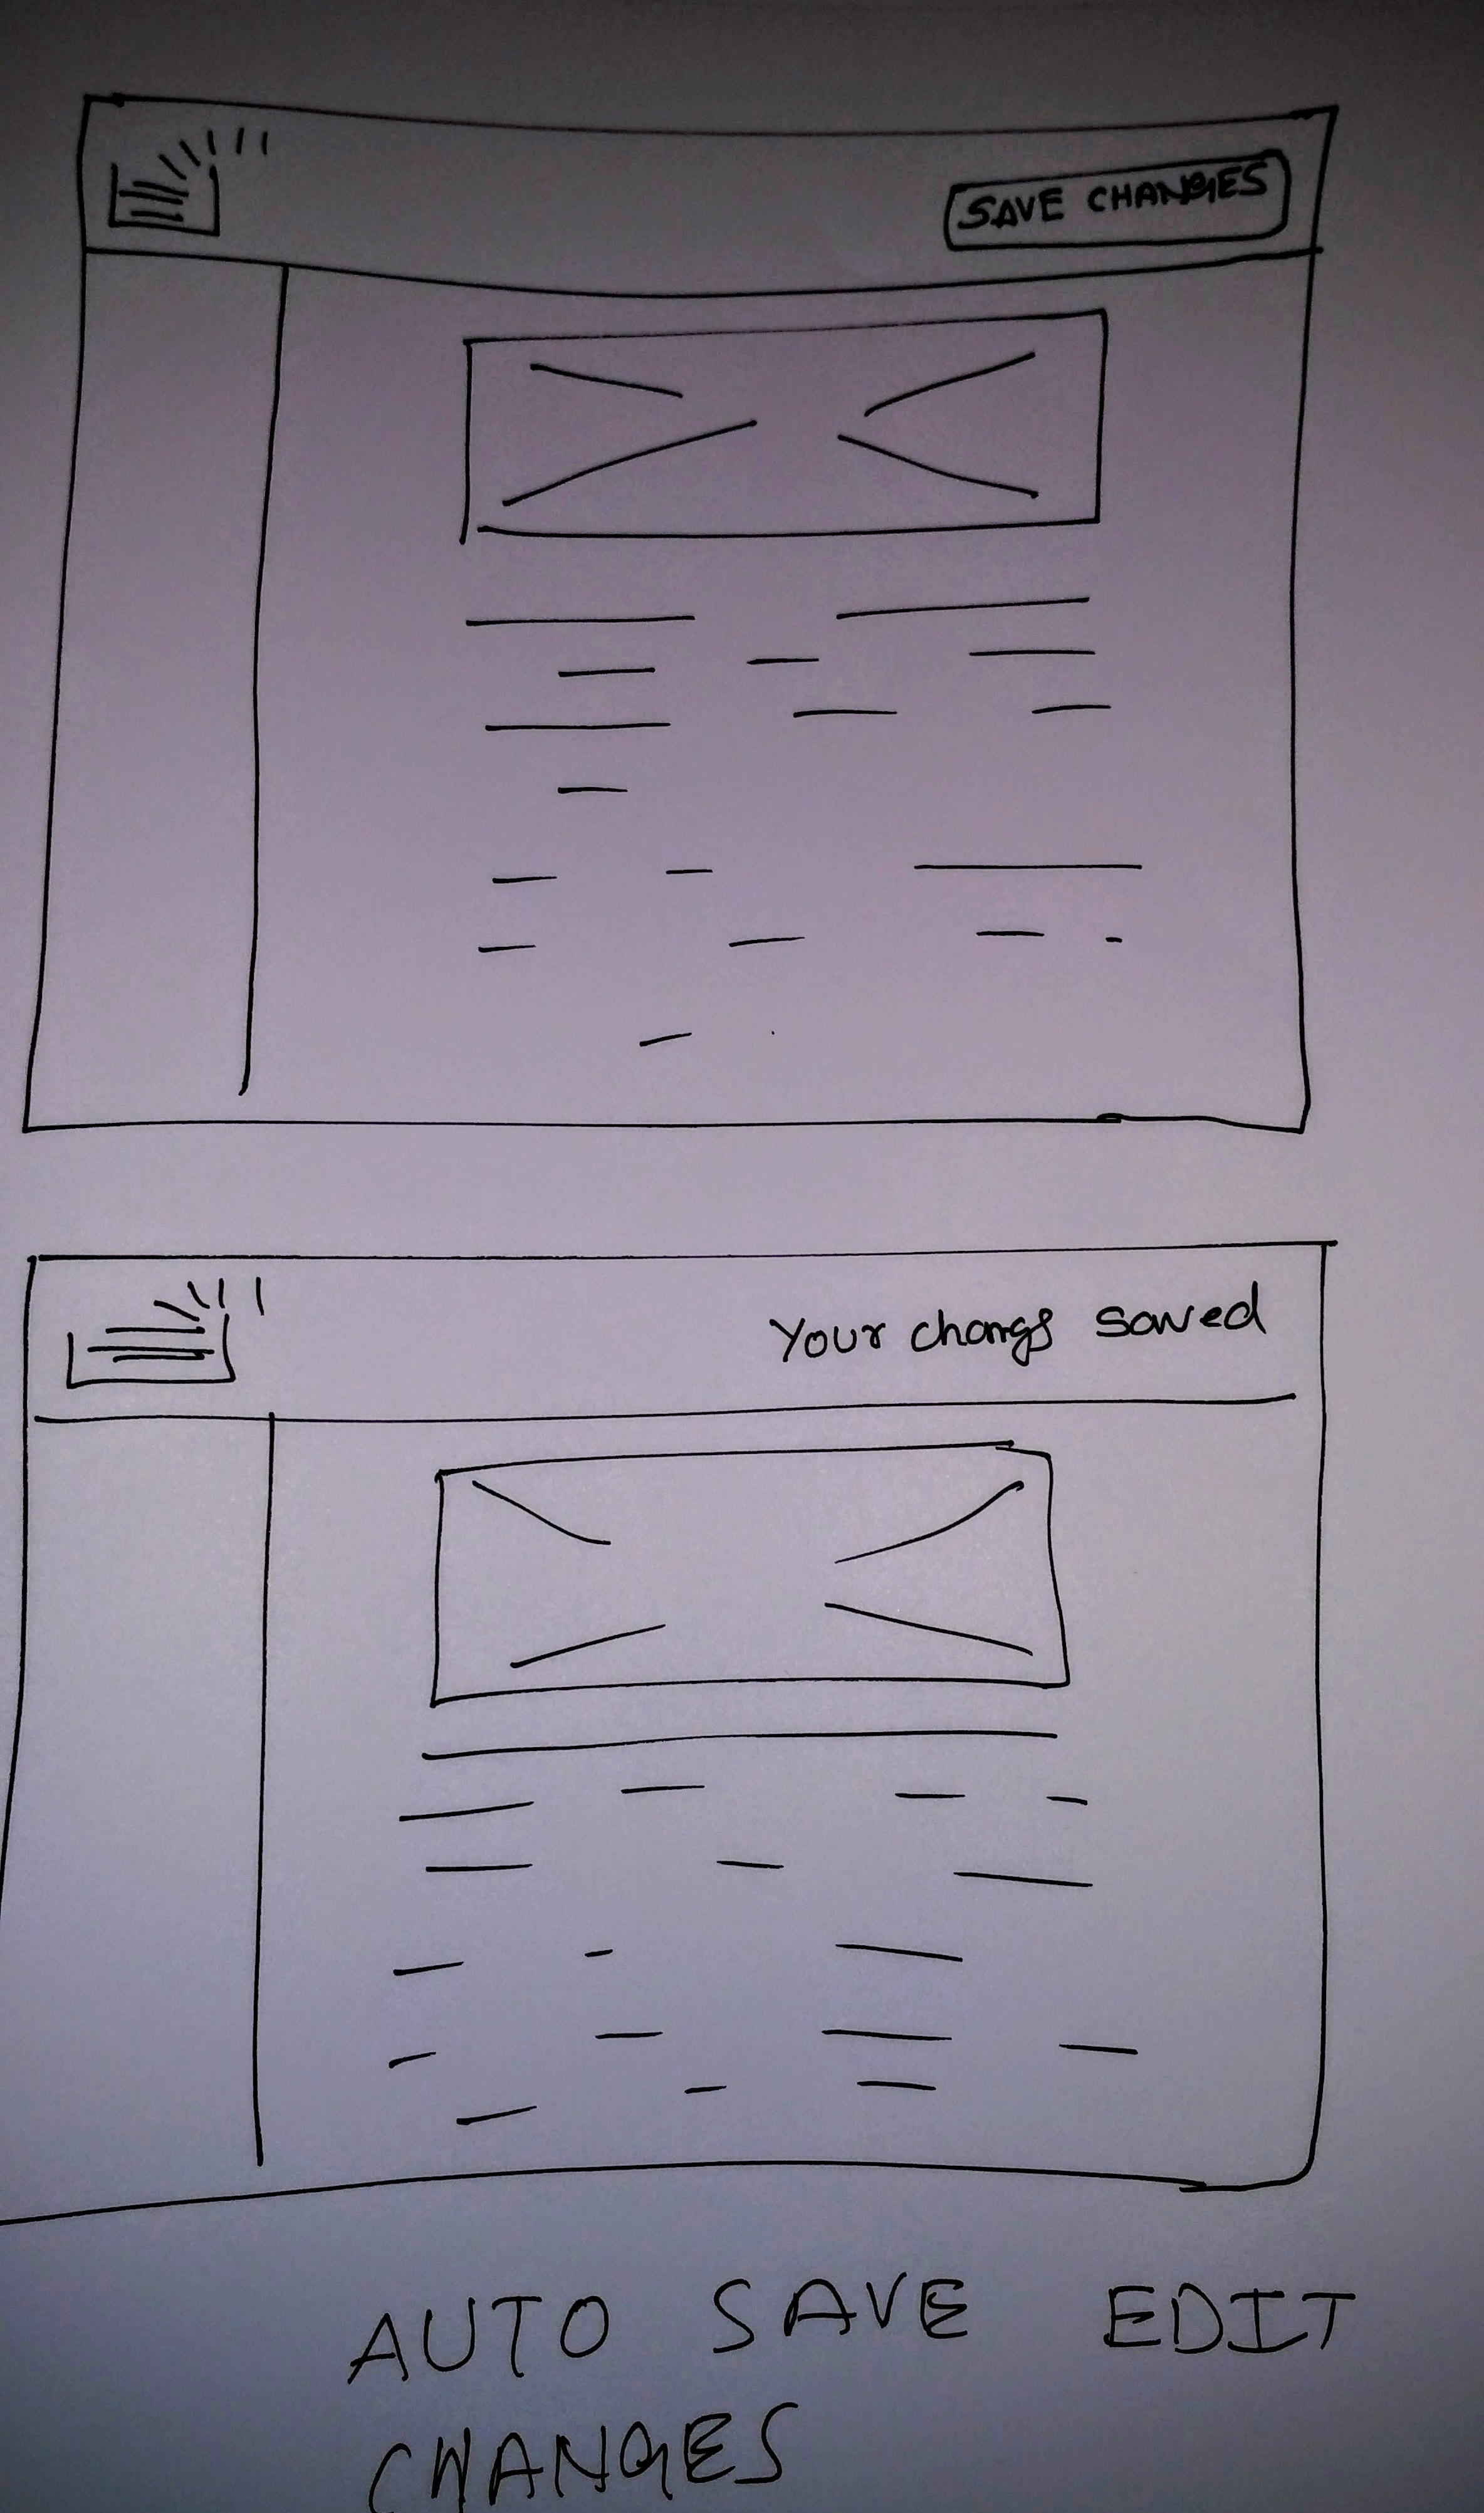 SAVE CHANGES
Your changs saved
AUTO SAVE EDIT
CHANGES